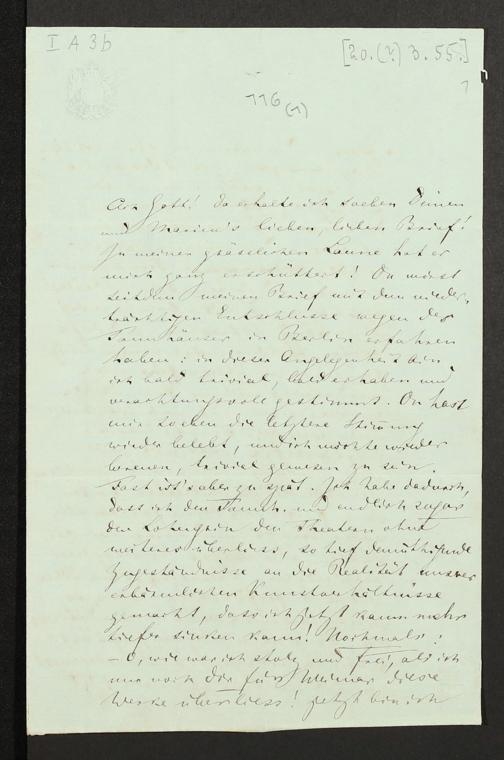 I A 3b
[20.(?) 3.55.]
1
116 (1)
Ach Gott! Da erhalte ich soeben Deinen
und Marien's lieben, lieben Brief!
In meiner grässlichen Laune hat er
mich ganz erschüttert! Du wirst
seitdem meinen Brief mit dem nieder-
trächtigen Entschlusse wegen des
Tannhäuser in Berlin erfahren
haben: in dieser Angelegenheit bin
ich bald trivial, bald erhaben und
verachtungsvoll gestimmt. Du hast
mir soeben die letztere Stimmung
wieder belebt, und ich möchte wieder
bereuen, trivial gewesen zu sein.
Fast ist's aber zu spät. Ich habe dadurch,
dass ich den Tannh. und endlich sogar
den Lohengrin den Theatern ohne
weiteres überliess, so tief demüthigende
Zugeständnisse an die Realität unsrer
erbärmlichen Kunstverhältnisse
gemacht, dass ich jetzt kaum mehr
tiefer sinken kann! Nochmals:
– O, wie war ich stolz und frei, als ich
nur noch Dir für Weimar diese
Werke überliess! Jetzt bin ich